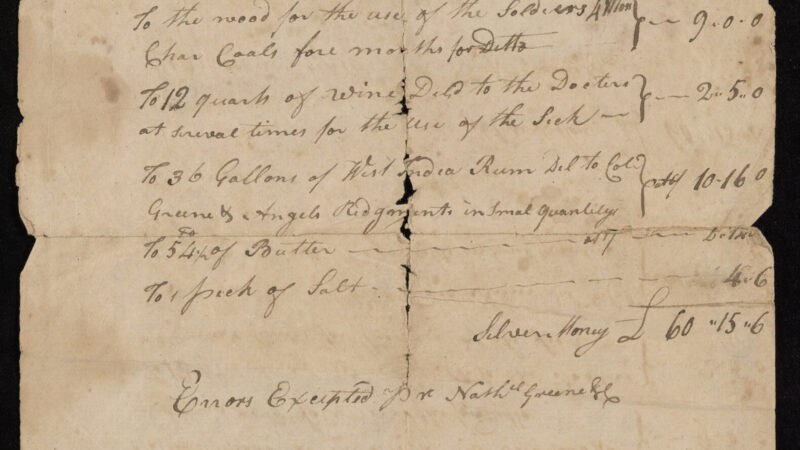 To the wood for the use of the Soldiers 9 . 0 . 0
Char Coals fore months for Ditto
To 12 quarts of wine Deld to the Docters 2 " 5 " 0
at serval times for the use of the Sick
To 36 Gallons of West India Rum Del to Col: 10 . 16 0
Greene & Angels Ridgments in Smal quantitys
To 54 of Butter
To 1 peck of Salt 4 . 6
Silver Money £ 60 " 15 " 6
Errors Excepted pr Nathel Greene & Co